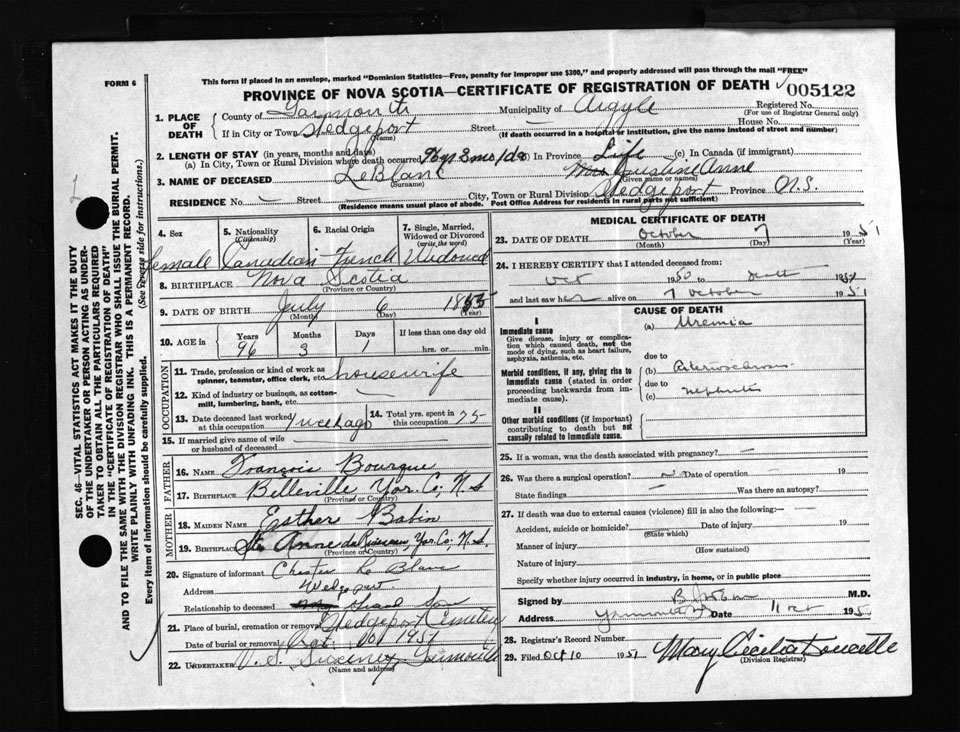 FORM 6
This form if placed in an envelope, marked "Dominion Statistics—Free, penalty for improper use $300," and properly addressed will pass through the mail "FREE"
PROVINCE OF NOVA SCOTIA—CERTIFICATE OF REGISTRATION OF DEATH
005122
1. PLACE OF DEATH
County of Yarmouth Municipality of Argyle Registered No.
(For use of Registrar General only)
If in City or Town Wedgeport Street — House No.
(Name) (If death occurred in a hospital or institution, give the name instead of street and number)
2. LENGTH OF STAY (in years, months and days)
(a) In City, Town or Rural Division where death occurred 96 yrs 3 mo 1 da (b) In Province Life (c) In Canada (if immigrant)
3. NAME OF DECEASED LeBlanc Mrs Justine Anne
(Surname) (Given name or names)
RESIDENCE No. — Street City, Town or Rural Division Wedgeport Province N.S.
(Residence means usual place of abode. Post Office Address for residents in rural parts not sufficient)
4. Sex
female
5. Nationality (Citizenship)
Canadian
6. Racial Origin
French
7. Single, Married, Widowed or Divorced (write the word)
Widowed
8. BIRTHPLACE Nova Scotia
(Province or Country)
9. DATE OF BIRTH July 6 1855
(Month) (Day) (Year)
10. AGE in Years Months Days If less than one day old
96 3 1 hrs. or min.
OCCUPATION
11. Trade, profession or kind of work as spinner, teamster, office clerk, etc. housewife
12. Kind of industry or business, as cotton-mill, lumbering, bank, etc. —
13. Date deceased last worked at this occupation 1 week ago
14. Total yrs. spent in this occupation 75
15. If married give name of wife or husband of deceased
FATHER
16. NAME François Bourque
17. BIRTHPLACE Belleville Yar. Co, N.S
(Province or Country)
MOTHER
18. MAIDEN NAME Esther Babin
19. BIRTHPLACE Ste Anne du Ruisseau, Yar. Co. N.S.
(Province or Country)
20. Signature of informant Chester Le Blanc
Address Wedgeport
Relationship to deceased grand son
21. Place of burial, cremation or removal Wedgeport Cemetery
Date of burial or removal Oct. 10 1951
22. UNDERTAKER V. S. Sweeney Yarmouth
(Name and address)
MEDICAL CERTIFICATE OF DEATH
23. DATE OF DEATH October 7 1951
(Month) (Day) (Year)
24. I HEREBY CERTIFY that I attended deceased from:
Oct 1950 to death 1951
and last saw her alive on 7 October 1951
CAUSE OF DEATH
I
Immediate cause
Give disease, injury or complication which caused death, not the mode of dying, such as heart failure, asphyxia, asthenia, etc.
(a) Uremia
due to
Morbid conditions, if any, giving rise to immediate cause (stated in order proceeding backwards from immediate cause).
(b) Arteriosclerosis
due to
(c) nephritis
II
Other morbid conditions (if important) contributing to death but not causally related to immediate cause.
25. If a woman, was the death associated with pregnancy? —
26. Was there a surgical operation? no Date of operation 19
State findings — Was there an autopsy?
27. If death was due to external causes (violence) fill in also the following:
Accident, suicide or homicide? Date of injury 19
(State which)
Manner of injury
(How sustained)
Nature of injury
Specify whether injury occurred in industry, in home, or in public place
Signed by M.D.
Address Yarmouth Date 11 oct 195
28. Registrar's Record Number
29. Filed Oct 10 1951 Mary Cecilia Doucette
(Division Registrar)
SEC. 46—VITAL STATISTICS ACT MAKES IT THE DUTY
OF THE UNDERTAKER OR PERSON ACTING AS UNDER-
TAKER TO OBTAIN ALL THE PARTICULARS REQUIRED
IN THE "CERTIFICATE OF REGISTRATION OF DEATH"
AND TO FILE THE SAME WITH THE DIVISION REGISTRAR WHO SHALL ISSUE THE BURIAL PERMIT.
WRITE PLAINLY WITH UNFADING INK. THIS IS A PERMANENT RECORD.
Every item of information should be carefully supplied. (See reverse side for instructions.)